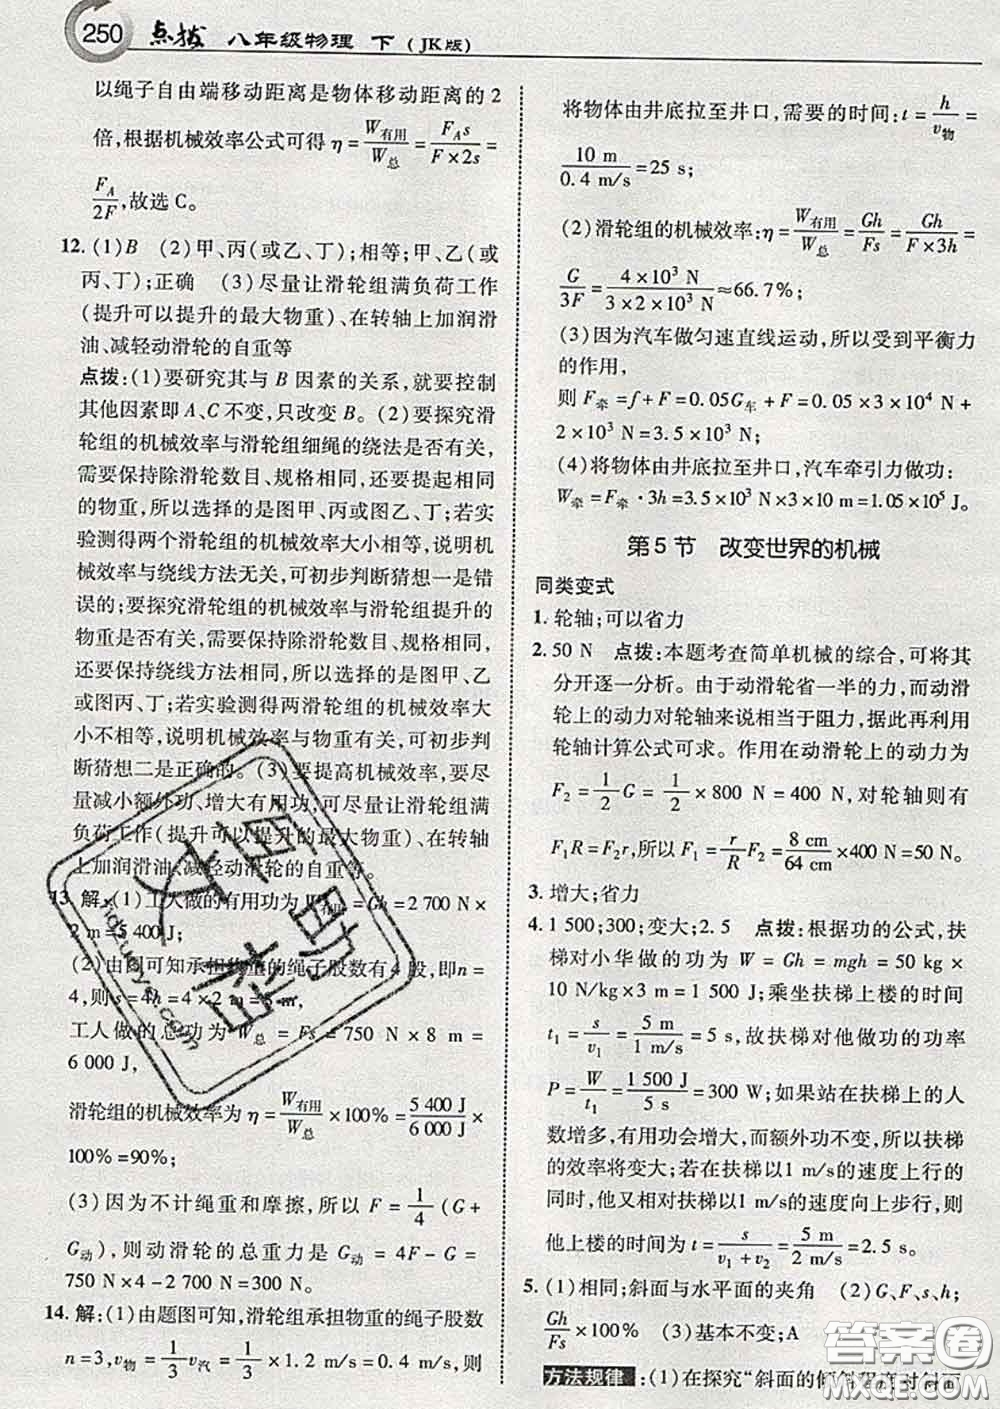 250 点拨 八年级物理 下(JK版)
以绳子自由端移动距离是物体移动距离的2
倍,根据机械效率公式可得 η = W有用/W总 = F_A s/(F×2s) =
F_A/2F,故选C。
12. (1)B (2)甲、丙(或乙、丁);相等;甲、乙(或
丙、丁);正确 (3)尽量让滑轮组满负荷工作
(提升可以提升的最大物重)、在转轴上加润滑
油、减轻动滑轮的自重等
点拨:(1)要研究其与B因素的关系,就要控制
其他因素即A、C不变,只改变B。(2)要探究滑
轮组的机械效率与滑轮组细绳的绕法是否有关,
需要保持除滑轮数目、规格相同,还要提起相同
的物重,所以选择的是图甲、丙或图乙、丁;若实
验测得两个滑轮组的机械效率大小相等,说明机
械效率与绕线方法无关,可初步判断猜想一是错
误的;要探究滑轮组的机械效率与滑轮组提升的
物重是否有关,需要保持除滑轮数目、规格相同,
还要保持绕线方法相同,所以选择的是图甲、乙
或图丙、丁;若实验测得两滑轮组的机械效率大
小不相等,说明机械效率与物重有关,可初步判
断猜想二是正确的。(3)要提高机械效率,要尽
量减小额外功、增大有用功;可尽量让滑轮组满
负荷工作(提升可以提升的最大物重)、在转轴
上加润滑油、减轻动滑轮的自重等。
13. 解:(1)工人做的有用功为 W有用 = Gh = 2 700 N ×
2 m = 5 400 J;
(2)由图可知承担物重的绳子股数有4股,即n =
4,则 s = 4h = 4 × 2 m = 8 m,
工人做的总功为 W总 = Fs = 750 N × 8 m =
6 000 J,
滑轮组的机械效率为 η = W有用/W总 × 100% = 5 400 J/6 000 J ×
100% = 90%;
(3)因为不计绳重和摩擦,所以 F = 1/4 (G +
G动),则动滑轮的总重力是 G动 = 4F − G =
750 N×4 − 2 700 N = 300 N。
14. 解:(1)由题图可知,滑轮组承担物重的绳子股数
n = 3, v物 = 1/3 v汽 = 1/3 × 1.2 m/s = 0.4 m/s,则
将物体由井底拉至井口,需要的时间:t = h/v物 =
10 m/0.4 m/s = 25 s;
(2)滑轮组的机械效率:η = W有用/W总 = Gh/Fs = Gh/(F×3h) =
G/3F = 4 × 10³ N/(3 × 2 × 10³ N) ≈ 66.7%;
(3)因为汽车做匀速直线运动,所以受到平衡力
的作用,
则 F牵 = f + F = 0.05G车 + F = 0.05 × 3 × 10⁴ N +
2 × 10³ N = 3.5 × 10³ N;
(4)将物体由井底拉至井口,汽车牵引力做功:
W牵 = F牵·3h = 3.5 × 10³ N × 3 × 10 m = 1.05 × 10⁵ J。
第5节 改变世界的机械
同类变式
1. 轮轴;可以省力
2. 50 N 点拨:本题考查简单机械的综合,可将其
分开逐一分析。由于动滑轮省一半的力,而动滑
轮上的动力对轮轴来说相当于阻力,据此再利用
轮轴计算公式可求。作用在动滑轮上的动力为
F₂ = 1/2 G = 1/2 × 800 N = 400 N,对轮轴则有
F₁R = F₂r,所以 F₁ = r/R F₂ = 8 cm/64 cm × 400 N = 50 N。
3. 增大;省力
4. 1 500;300;变大;2.5 点拨:根据功的公式,扶
梯对小华做的功为 W = Gh = mgh = 50 kg ×
10 N/kg × 3 m = 1 500 J;乘坐扶梯上楼的时间
t₁ = s/v₁ = 5 m/1 m/s = 5 s,故扶梯对他做功的功率
P = W/t₁ = 1 500 J/5 s = 300 W;如果站在扶梯上的人
数增多,有用功会增大,而额外功不变,所以扶梯
的效率将变大;若在扶梯以1 m/s的速度上行的
同时,他又相对扶梯以1 m/s的速度向上步行,则
他上楼的时间为 t = s/(v₁ + v₂) = 5 m/2 m/s = 2.5 s。
5. (1)相同;斜面与水平面的夹角 (2)G、F、s、h;
Gh/Fs × 100% (3)基本不变;A
方法规律:(1)在探究“斜面的倾斜程度对斜面
作业互助
zuoyehuzhu.com
答案圈
MXQE.COM